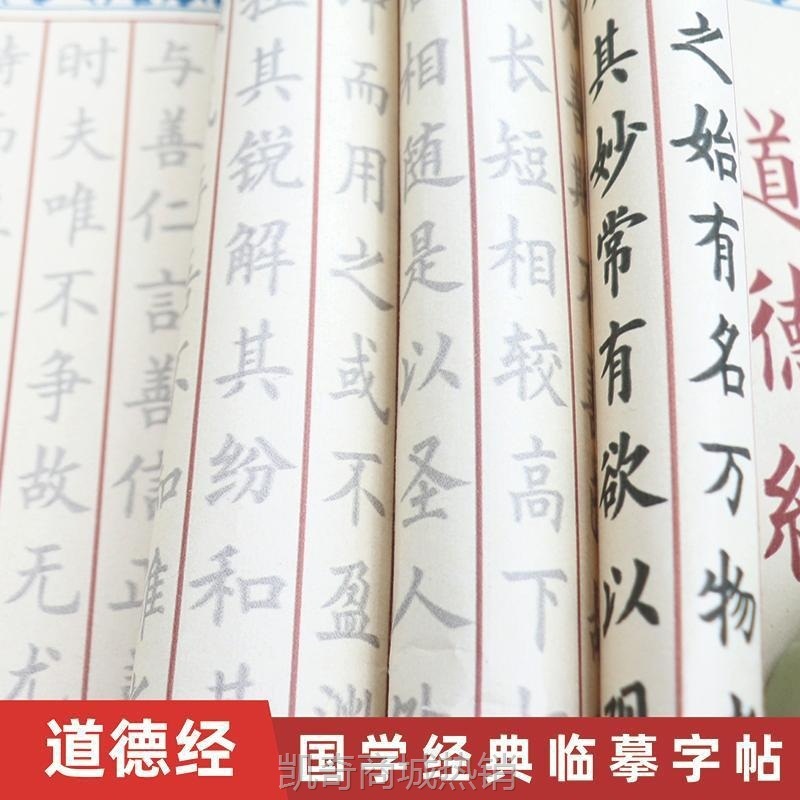 道德經
之始有名万物
其妙常有欲以观
长短相较高下
相随是以圣人
冲而用之或不盈渊
挫其锐解其纷和其
与善仁言善信正
时夫唯不争故无尤
道德经
国学经典临摹字帖
凯奇商城热销